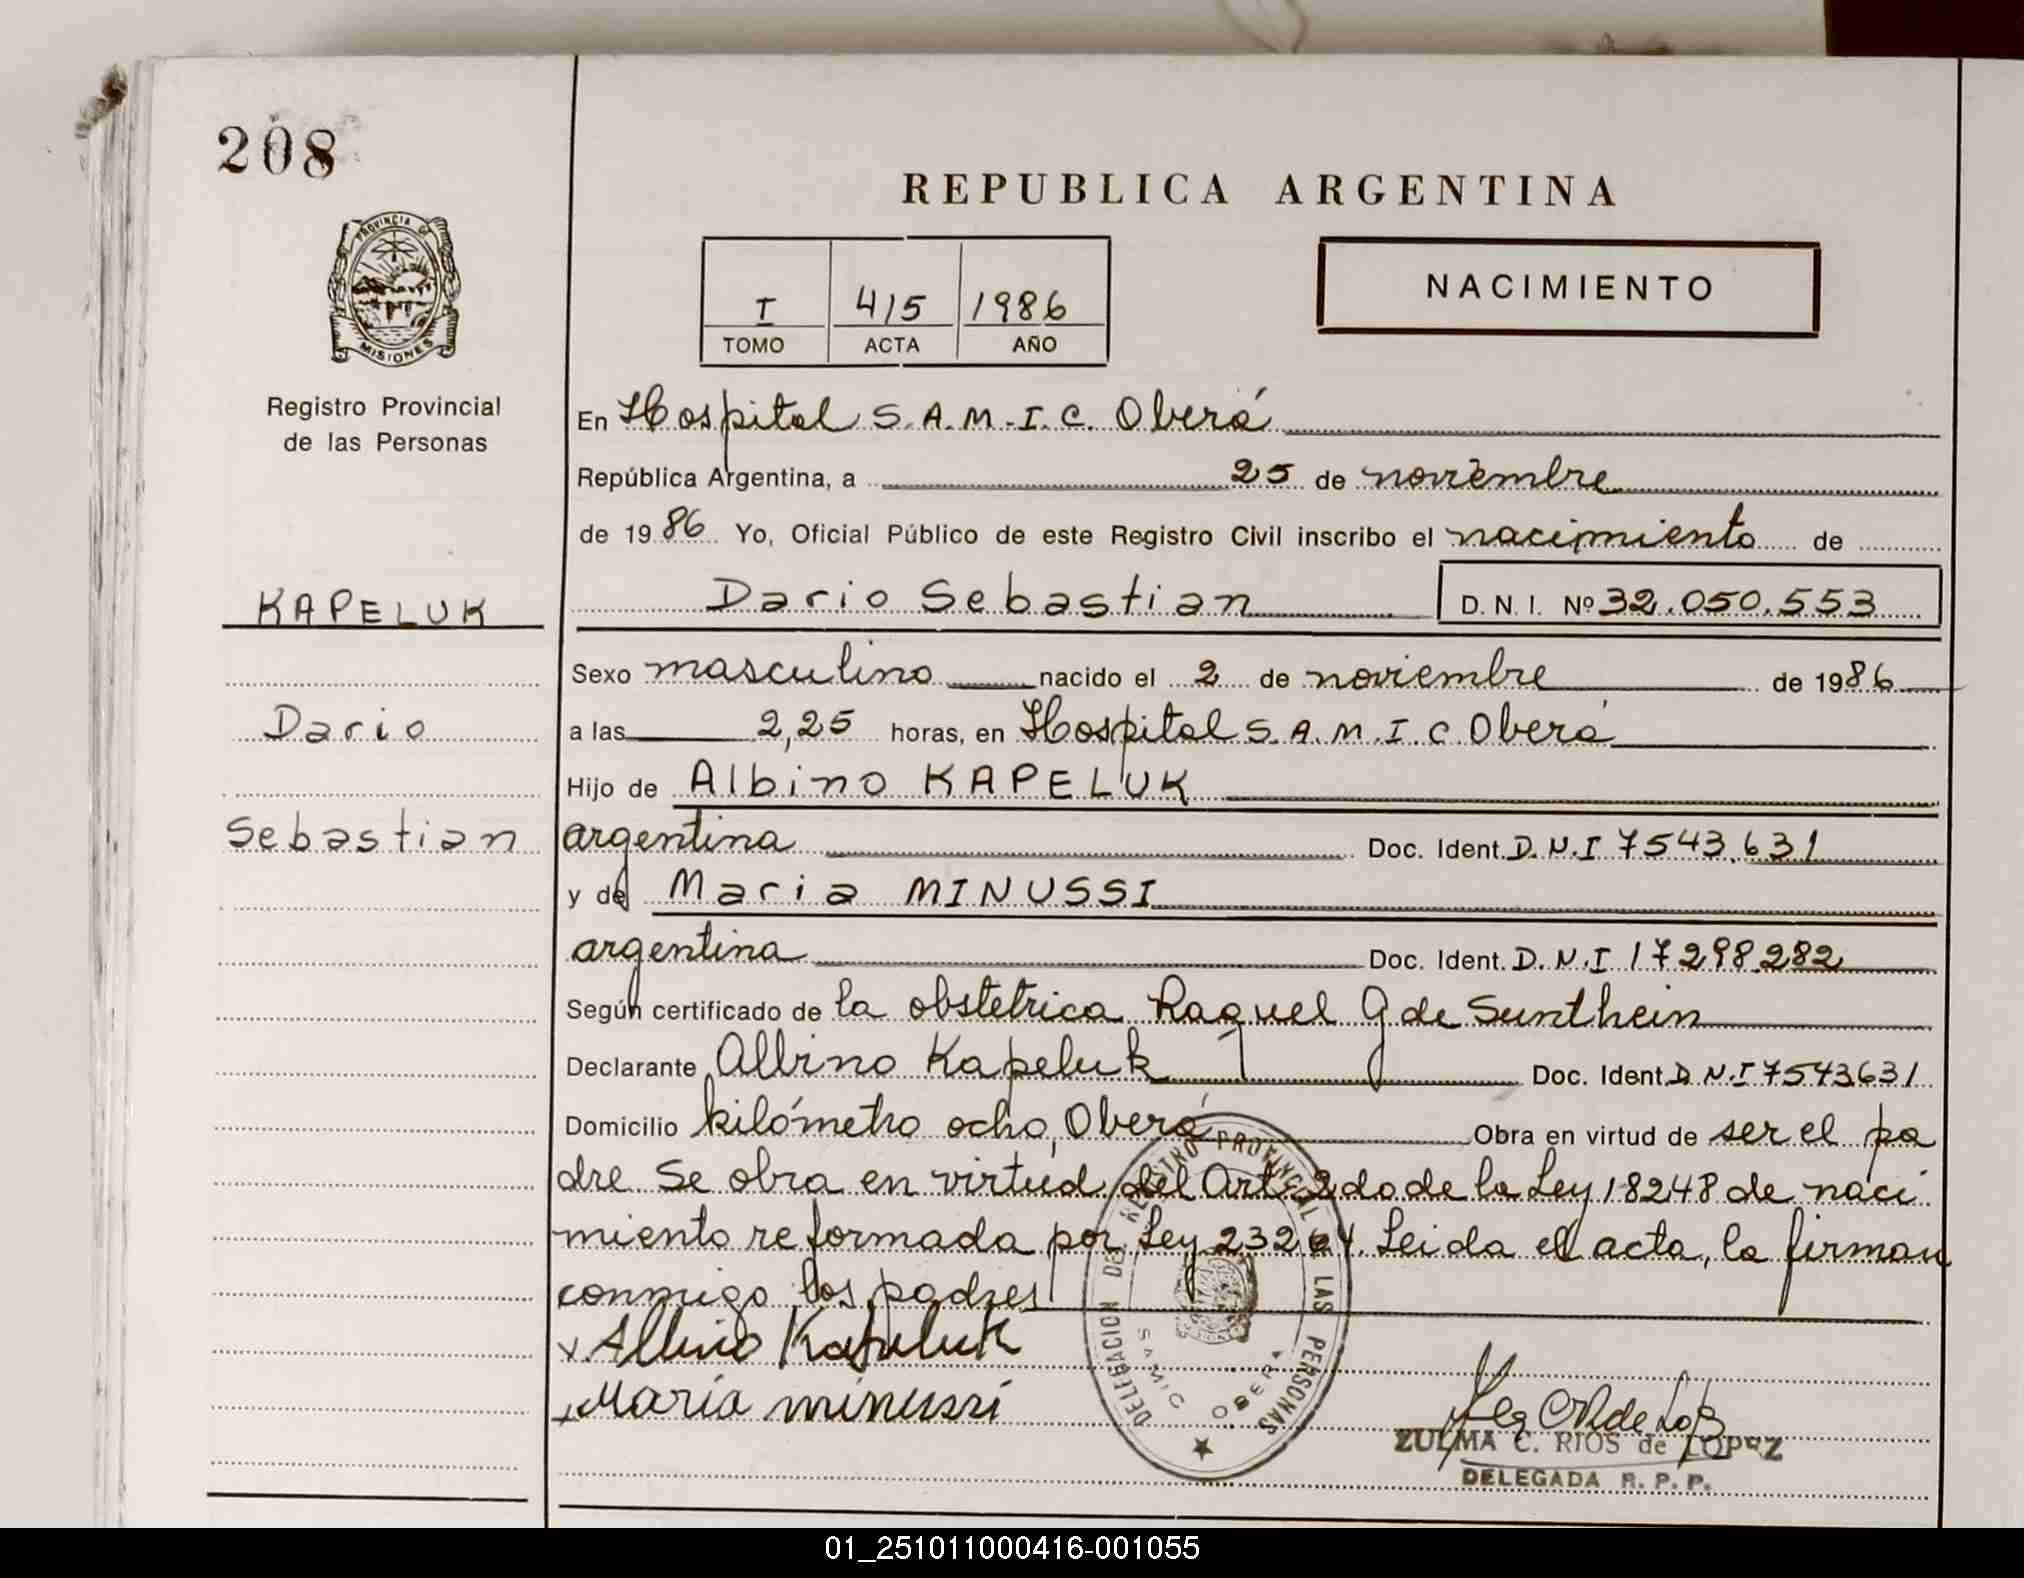 208
REPUBLICA ARGENTINA
PROVINCIA DE
MISIONES
Registro Provincial
de las Personas
I 415 1986
TOMO ACTA AÑO
NACIMIENTO
En Hospital S.A.M.I.C. Oberá
República Argentina, a 25 de noviembre
de 1986 Yo, Oficial Público de este Registro Civil inscribo el nacimiento de
KAPELUK
Dario Sebastian D.N.I. Nº 32.050.553
Sexo masculino nacido el 2 de noviembre de 1986
Dario
a las 2,25 horas, en Hospital S.A.M.I.C Oberá
Hijo de Albino KAPELUK
Sebastian
argentina Doc. Ident. D.N.I 7543.631
y de Maria MINUSSI
argentina Doc. Ident. D.N.I 17298.282
Según certificado de la obstetrica Raquel G de Sunthein
Declarante Albino Kapeluk Doc. Ident D N.I 7543631
Domicilio kilómetro ocho, Oberá Obra en virtud de ser el pa
dre. Se obra en virtud del Art. 2do de la Ley 18248 de naci
miento reformada por Ley 23264. Leida el acta, la firman
conmigo los padres
x Albino Kapeluk
x Maria minussi
DELEGACION DEL REGISTRO PROVINCIAL DE LAS PERSONAS
SAMIC OBERA
ZULMA C. RIOS de LOPEZ
DELEGADA R.P.P.
01_251011000416-001055